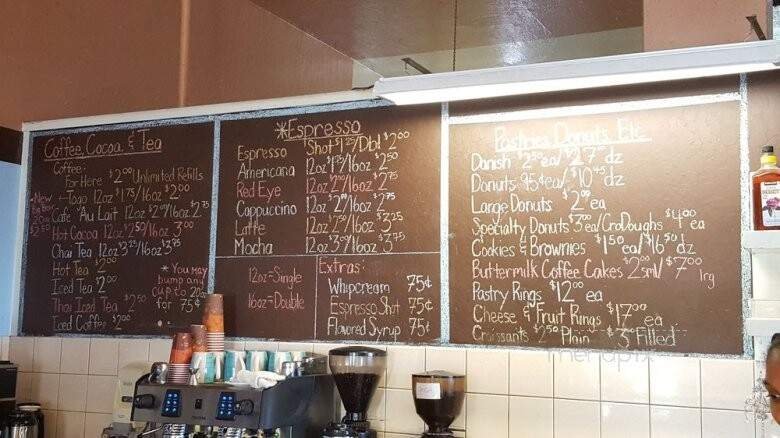 Coffee, Cocoa, & Tea
Coffee-
For Here $2.00 Unlimited Refills
to go 12oz $1.75/16oz $2.00
New
Big Boy
20oz
Cafe 'Au Lait 12oz $2.50/16oz $2.75
Hot Cocoa 12oz $2.50/16oz $3.00
Chai Tea 12oz $3.25/16oz $3.75
Hot Tea $2.00
Iced Tea $2.00
Thai Iced Tea $2.50
Iced Coffee $2.00
*You may
bump any
cup to 20oz
for 75¢
*Espresso
Espresso Shot $1.25/Dbl $2.00
Americana 12oz $1.75/16oz $2.50
Red Eye 12oz $2.00/16oz $2.75
Cappuccino 12oz /16oz $2.75
Latte 12oz /16oz $3.25
Mocha 12oz /16oz $3.75
12oz=Single
16oz=Double
Extras:
Whipcream 75¢
Espresso Shot 75¢
Flavored Syrup 75¢
Pastries, Donuts, Etc.
Danish $2.50 ea/ dz
Donuts 95¢ea/$10.45 dz
Large Donuts $2.00 ea
Specialty Donuts $3 ea/CroDoughs $4.00 ea
Cookies & Brownies $1.50 ea/$16.50 dz
Buttermilk Coffee Cakes $2.00 sml/$7.00 lrg
Pastry Rings $12.00 ea
Cheese & Fruit Rings $17.00 ea
Croissants $2.50 Plain $3.00 Filled
menupix